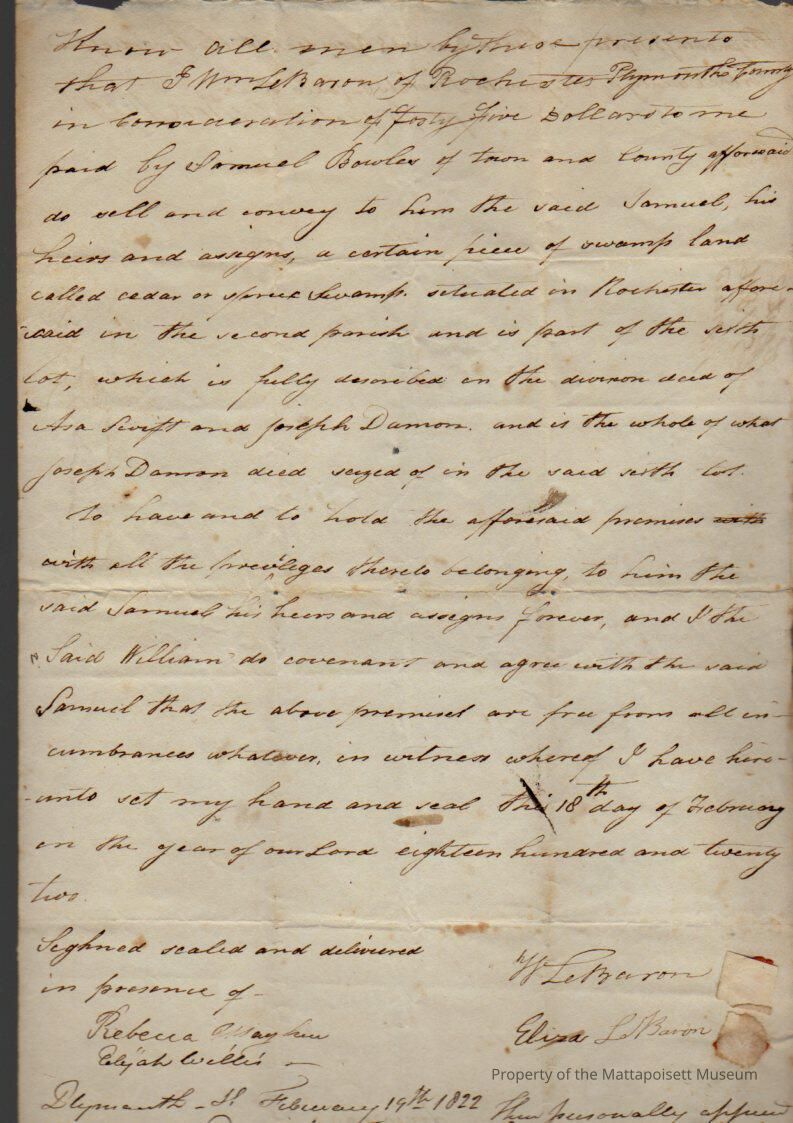 Know all men by these presents
that I Wm LeBaron of Rochester Plymouth County
in Consideration of forty five Dollars to me
paid by Samuel Bowles of town and County afforesaid
do sell and convey to him the said Samuel, his
heirs and assigns, a certain piece of swamp land
called cedar or spruce Swamp. situated in Rochester afore-
-said in the second parish and is part of the sixth
lot, which is fully described in the division deed of
Asa Swift and Joseph Damon. and is the whole of what
Joseph Damon died seized of in the said sixth lot.
to have and to hold the afforesaid premises with
with all the privileges thereto belonging, to him the
said Samuel his heirs and assigns forever, and I the
Said William do covenant and agree with the said
Samuel that the above premises are free from all in-
cumbrances whatever, in witness whereof I have here-
-unto set my hand and seal this 18th day of February
in the year of our Lord eighteen hundred and twenty
two.
Seghned sealed and delivered
in presence of -
W LeBaron
Rebecca Mayhew
Eliza LeBaron
Elijah Willis
Property of the Mattapoisett Museum
Plymouth - Ss February 19th 1822 then personally appeared